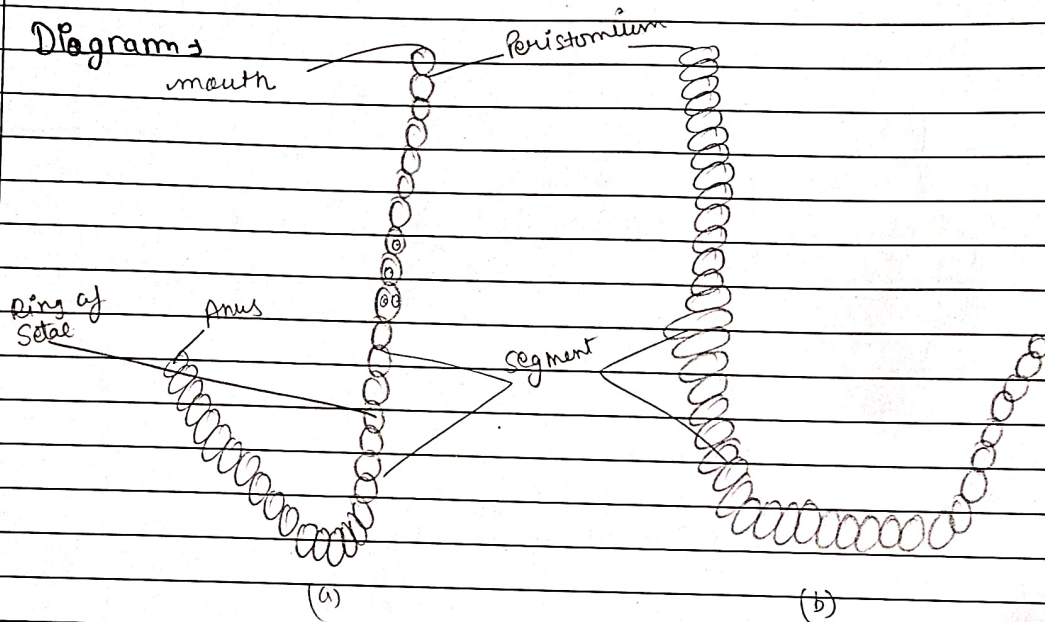 Diagram →
mouth
Peristomium
Ring of
Setae
Anus
Segment
(a)
(b)